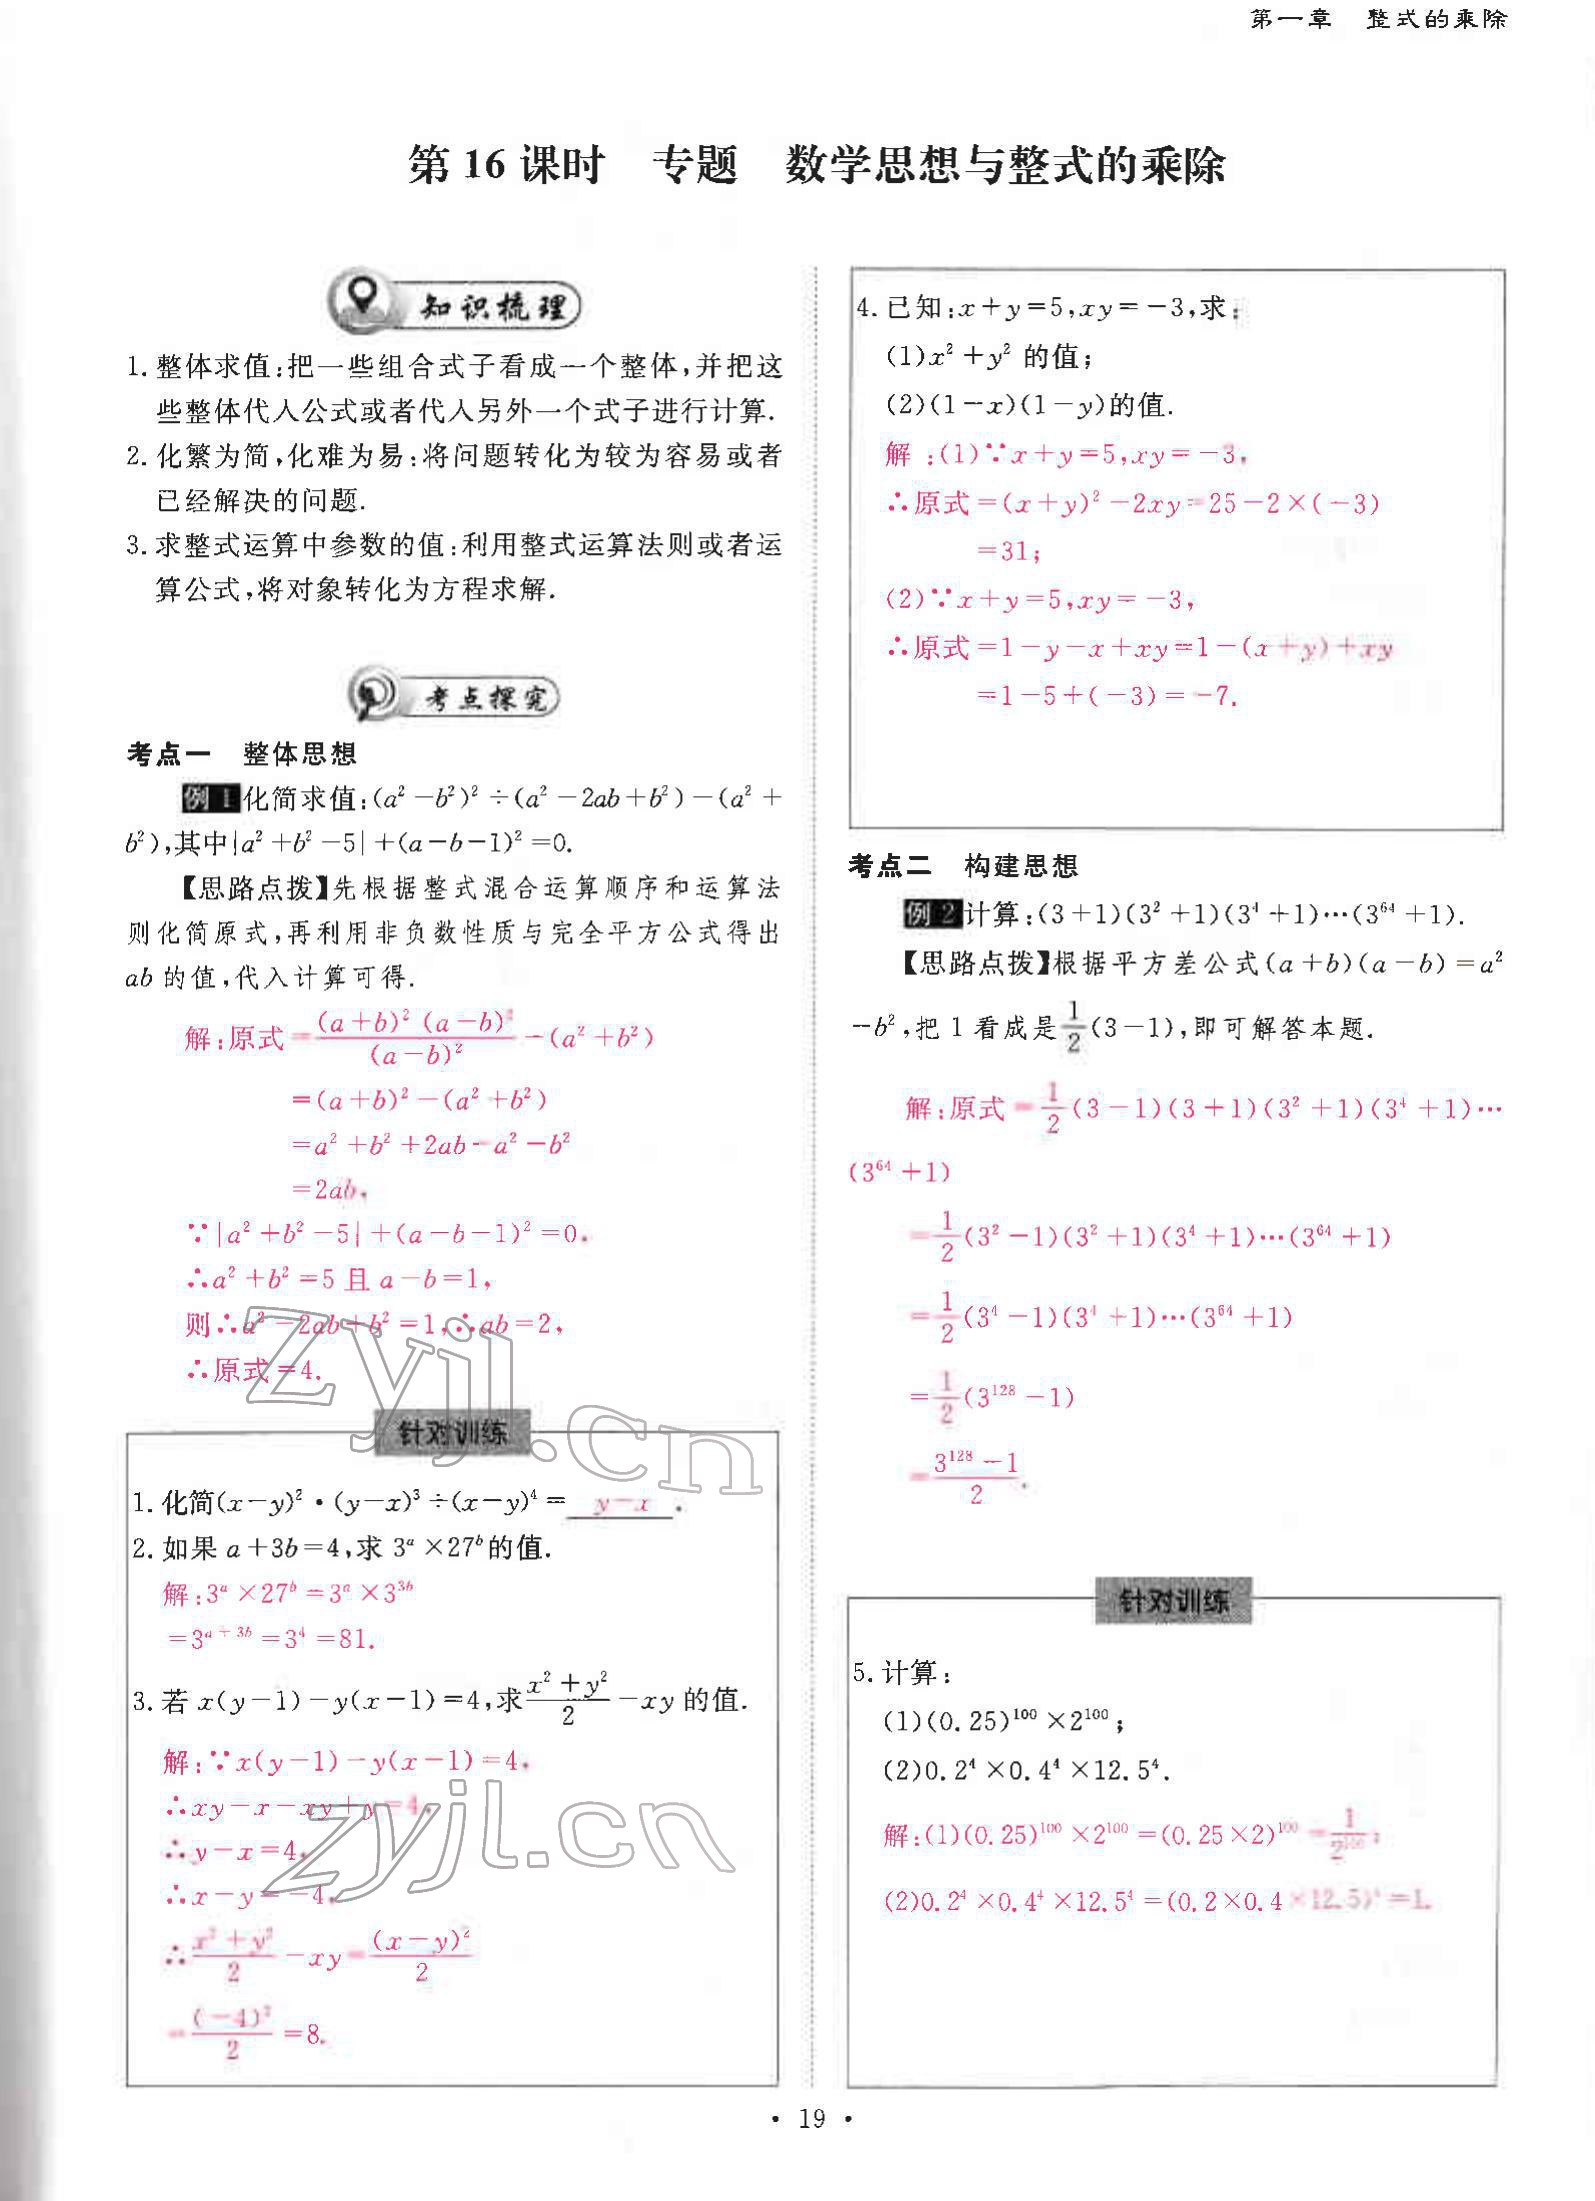 第一章　整式的乘除
第 16 课时　专题　数学思想与整式的乘除
知识梳理
1. 整体求值:把一些组合式子看成一个整体,并把这
些整体代入公式或者代入另外一个式子进行计算.
2. 化繁为简,化难为易:将问题转化为较为容易或者
已经解决的问题.
3. 求整式运算中参数的值:利用整式运算法则或者运
算公式,将对象转化为方程求解.
考点探究
考点一　整体思想
例 1 化简求值:(a²-b²)²÷(a²-2ab+b²)-(a²+
b²),其中|a²+b²-5|+(a-b-1)²=0.
【思路点拨】先根据整式混合运算顺序和运算法
则化简原式,再利用非负数性质与完全平方公式得出
ab 的值,代入计算可得.
解:原式=(a+b)²(a-b)²/(a-b)²-(a²+b²)
=(a+b)²-(a²+b²)
=a²+b²+2ab-a²-b²
=2ab.
∵|a²+b²-5|+(a-b-1)²=0.
∴a²+b²=5 且 a-b=1,
则∴a²-2ab+b²=1,∴ab=2,
∴原式=4.
针对训练
1. 化简(x-y)²·(y-x)³÷(x-y)⁴= y-x .
2. 如果 a+3b=4,求 3ᵃ×27ᵇ的值.
解:3ᵃ×27ᵇ=3ᵃ×3³ᵇ
=3ᵃ⁺³ᵇ=3⁴=81.
3. 若 x(y-1)-y(x-1)=4,求(x²+y²)/2-xy 的值.
解:∵x(y-1)-y(x-1)=4,
∴xy-x-xy+y=4,
∴y-x=4,
∴x-y=-4,
∴(x²+y²)/2-xy=(x-y)²/2
=(-4)²/2=8.
4. 已知:x+y=5,xy=-3,求:
(1)x²+y² 的值;
(2)(1-x)(1-y)的值.
解:(1)∵x+y=5,xy=-3,
∴原式=(x+y)²-2xy=25-2×(-3)
=31;
(2)∵x+y=5,xy=-3,
∴原式=1-y-x+xy=1-(x+y)+xy
=1-5+(-3)=-7.
考点二　构建思想
例 2 计算:(3+1)(3²+1)(3⁴+1)…(3⁶⁴+1).
【思路点拨】根据平方差公式(a+b)(a-b)=a²
-b²,把 1 看成是1/2(3-1),即可解答本题.
解:原式=1/2(3-1)(3+1)(3²+1)(3⁴+1)…
(3⁶⁴+1)
=1/2(3²-1)(3²+1)(3⁴+1)…(3⁶⁴+1)
=1/2(3⁴-1)(3⁴+1)…(3⁶⁴+1)
=1/2(3¹²⁸-1)
=(3¹²⁸-1)/2.
针对训练
5. 计算:
(1)(0.25)¹⁰⁰×2¹⁰⁰;
(2)0.2⁴×0.4⁴×12.5⁴.
解:(1)(0.25)¹⁰⁰×2¹⁰⁰=(0.25×2)¹⁰⁰=1/2¹⁰⁰;
(2)0.2⁴×0.4⁴×12.5⁴=(0.2×0.4×12.5)⁴=1.
· 19 ·
zyjl.cn
zyjl.cn